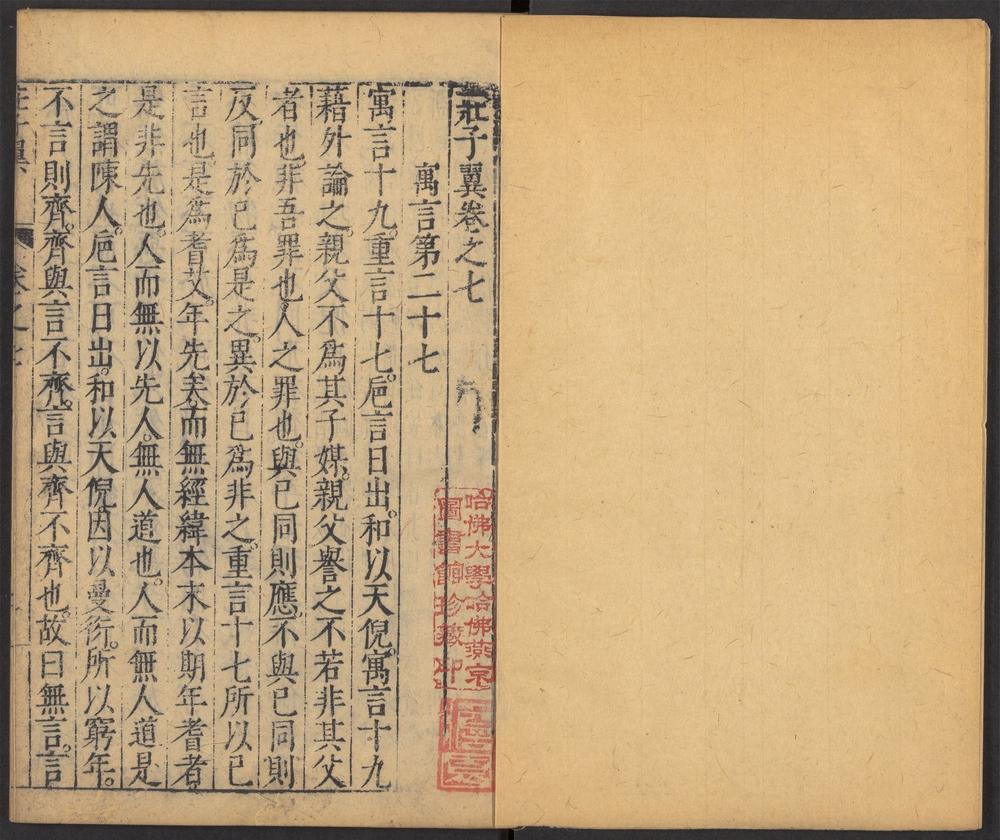 莊子翼卷之七
寓言第二十七
寓言十九。重言十七。巵言日出。和以天倪。寓言十九
藉外論之。親父不爲其子媒。親父譽之不若非其父
者也。非吾罪也。人之罪也。與已同則應。不與已同則
反。同於已爲是之。異於已爲非之。重言十七所以已
言也。是爲耆艾。年先矣而無經緯本末以期年耆者
是非先也。人而無以先人。無人道也。人而無人道是
之謂陳人。巵言日出。和以天倪。因以曼衍。所以窮年。
不言則齊。齊與言不齊。言與齊不齊也。故曰無言。言
卷之七
哈佛大學哈佛燕京
圖書館珍藏印